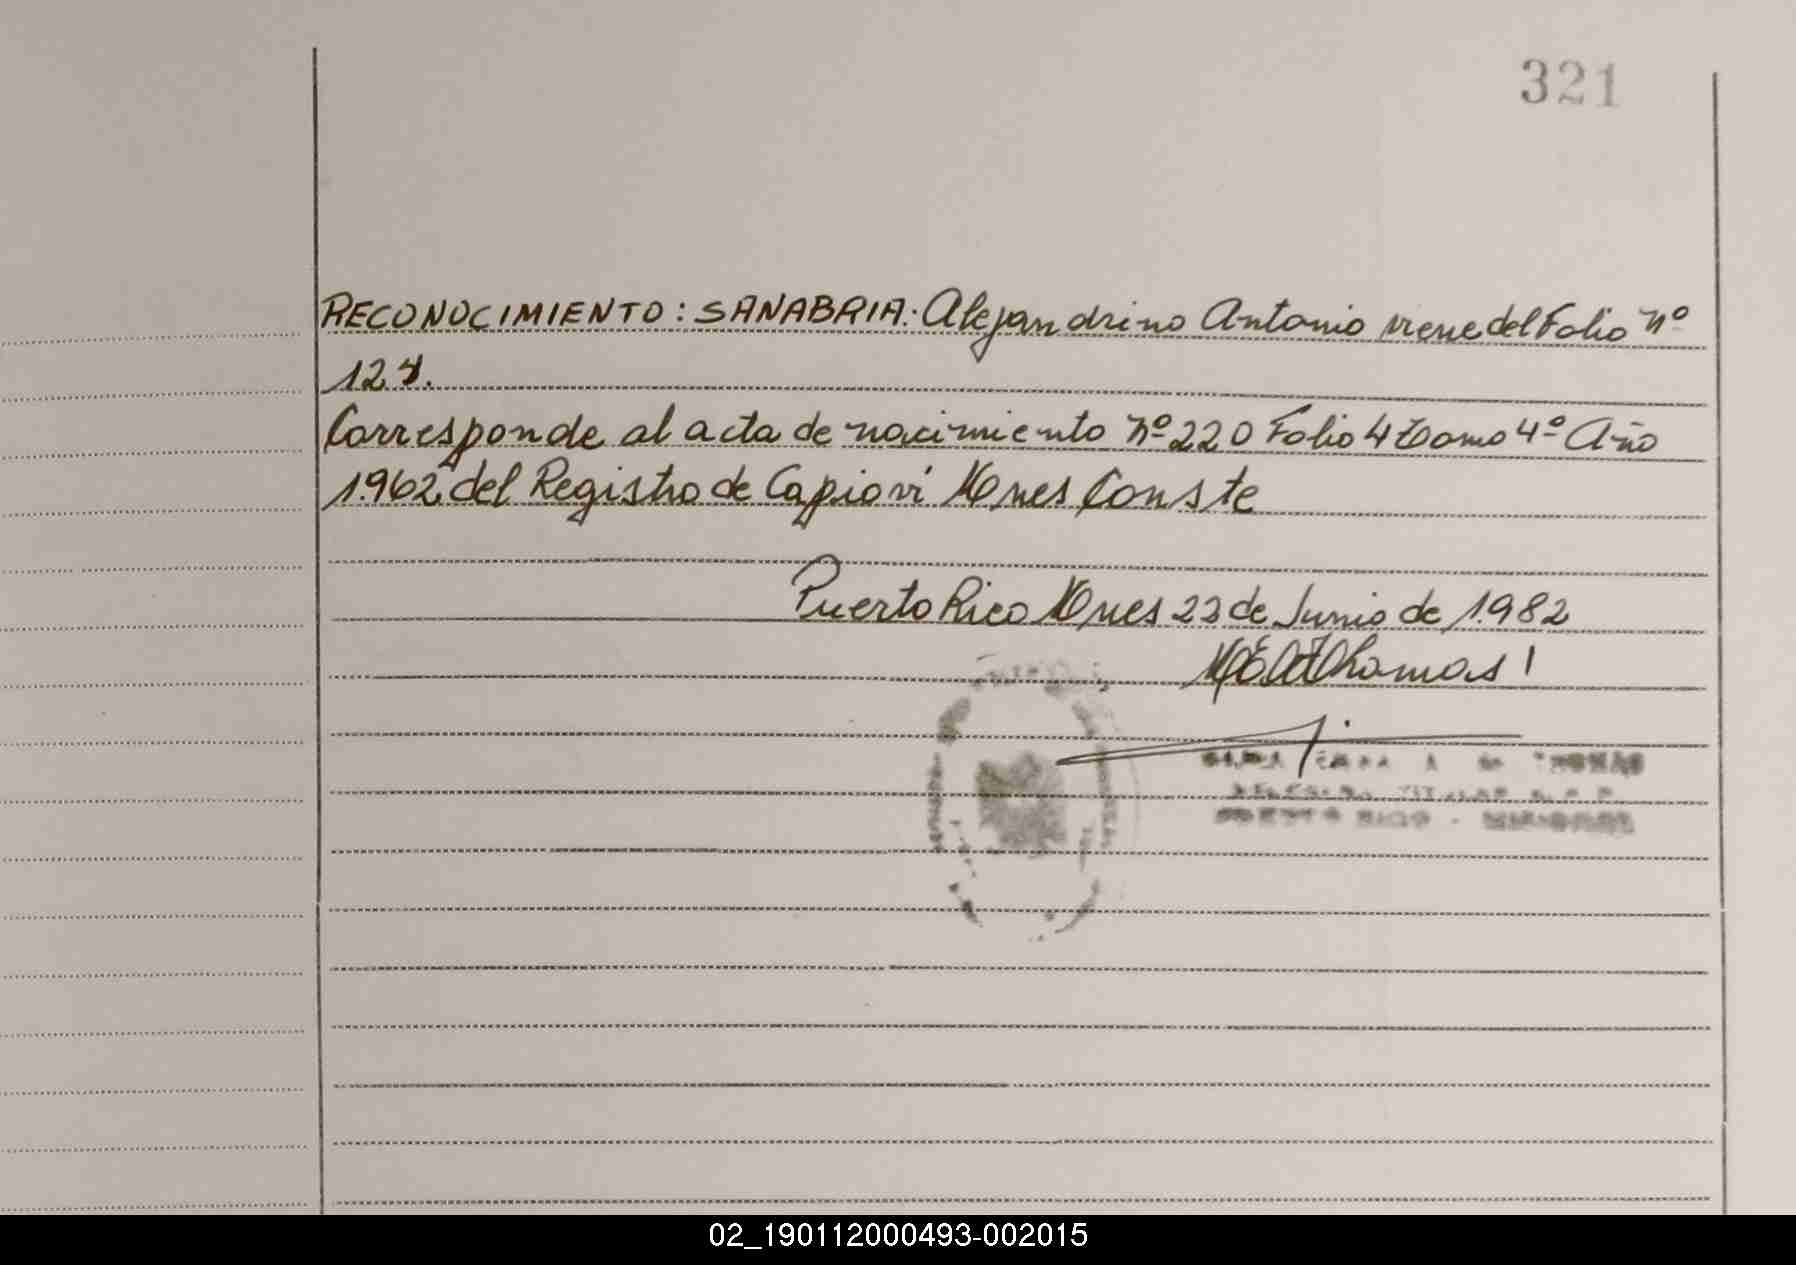 321
RECONOCIMIENTO: SANABRIA: Alejandrino Antonio viene del Folio nº
127.
Corresponde al acta de nacimiento nº 220 Folio 4 Tomo 4º Año
1.962 del Registro de Capioví Mnes Conste
Puerto Rico Mnes 22 de Junio de 1.982
Thomas
PUERTO RICO - MISIONES
02_190112000493-002015